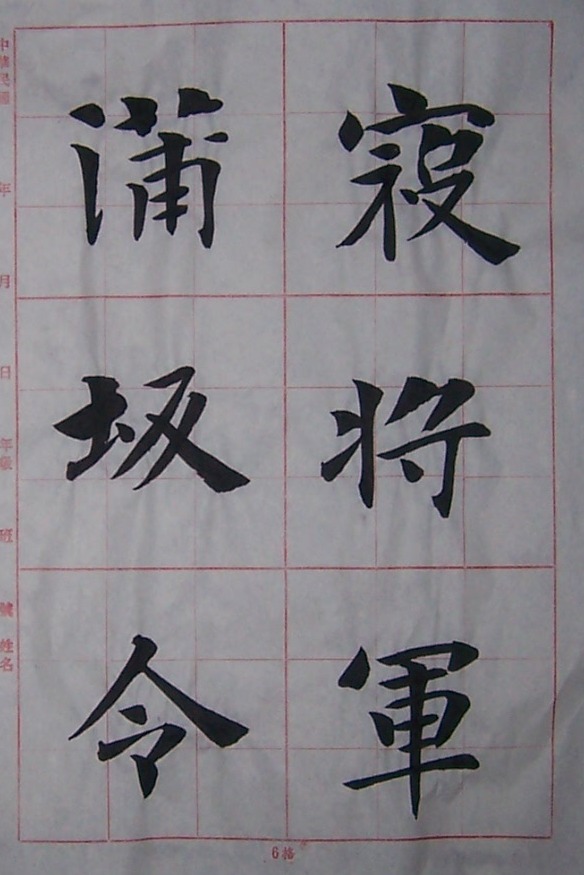 寇將軍
蒲坂令
中華民國 年 月 日 年級 班 號 姓名
6格